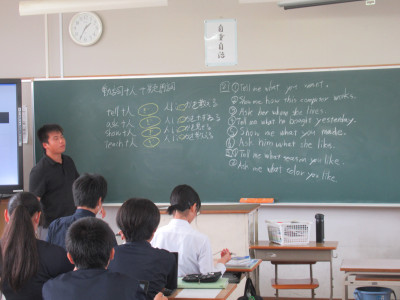 自身自治
動詞+人+疑問詞
tell+人+
人に を教える
ask+人+
人に をたずねる
show+人+
人に を見せる
teach+人+
人に を教える
2 ① Tell me what you want.
② Show me how this computer works.
③ Ask her where she lives.
④ Tell me what he bought yesterday.
⑤ Show me what you made.
⑥ Ask him what she likes.
Tell me what season you like.
Ask me what color you like.